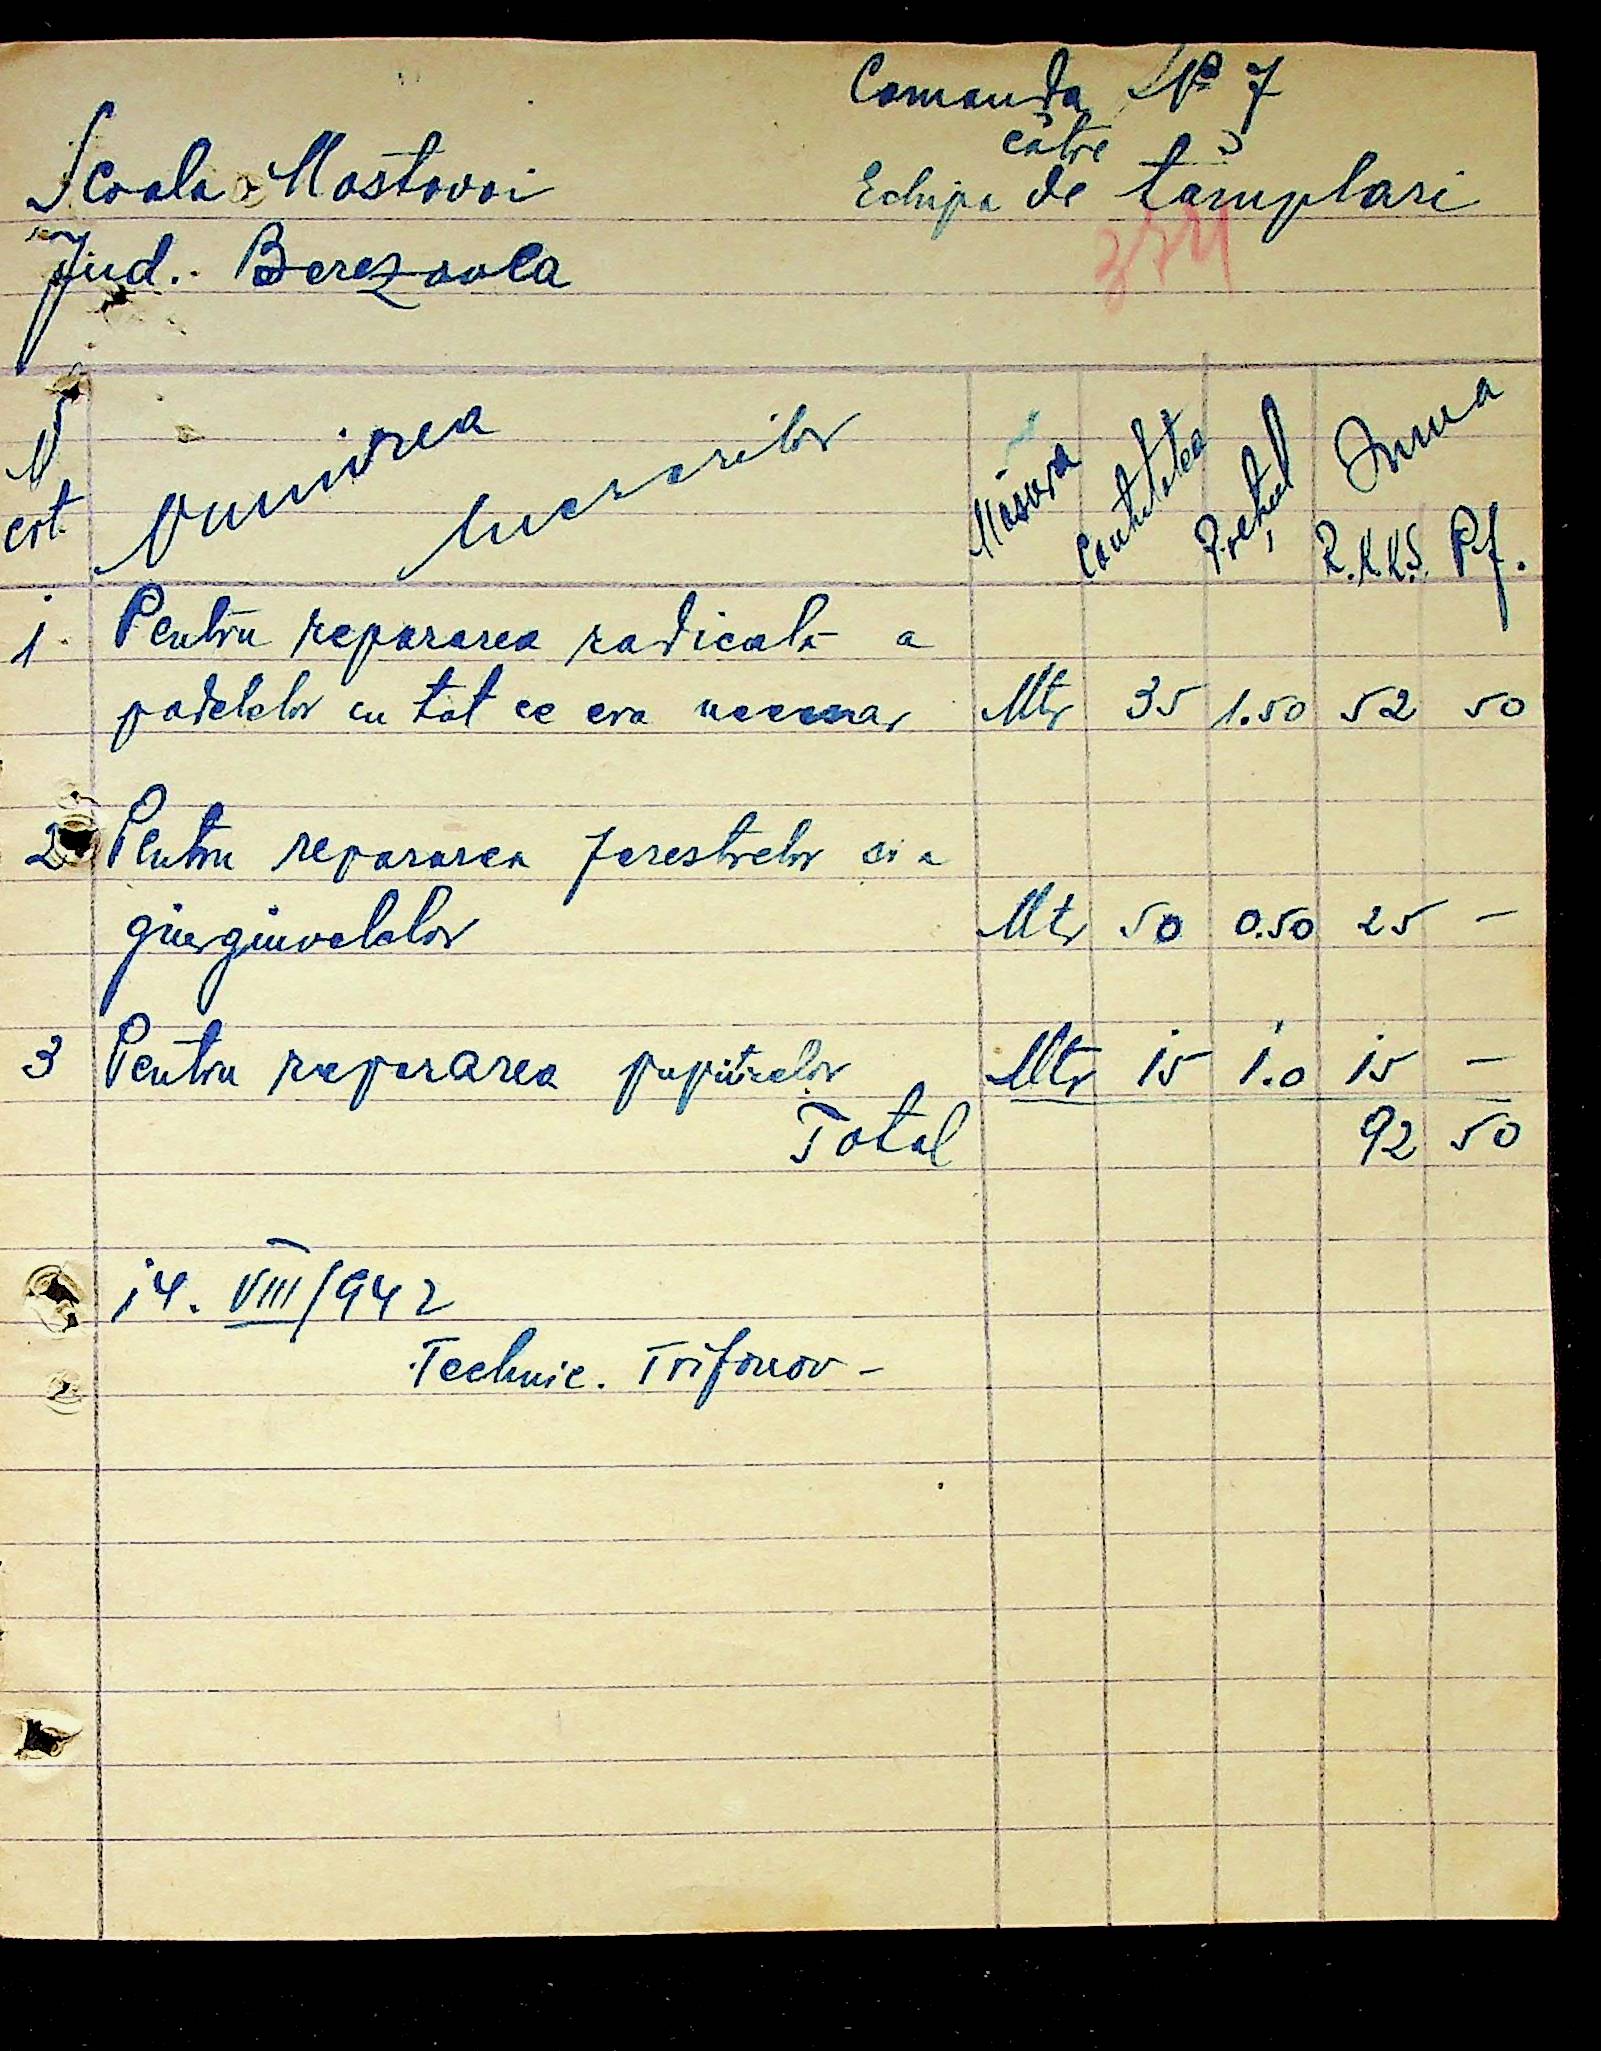 Comanda № 7
către
Echipa de tâmplari
Scoala Mostovoi
Jud. Berezovca
374
N crt. Numirea lucrarilor Măsura Cantitatea Prețul Suma R.K.K.S. Pf.
1 Pentru repararea radicală a
podelelor cu tot ce era necesar Mtr 35 1.50 52 50
2 Pentru repararea ferestrelor si a
giurgiuvelelor Mtr 50 0.50 25 –
3 Pentru repararea pupitrelor Mtr 15 1.0 15 –
Total 92 50
14. VIII/942
Technic. Trifonov –